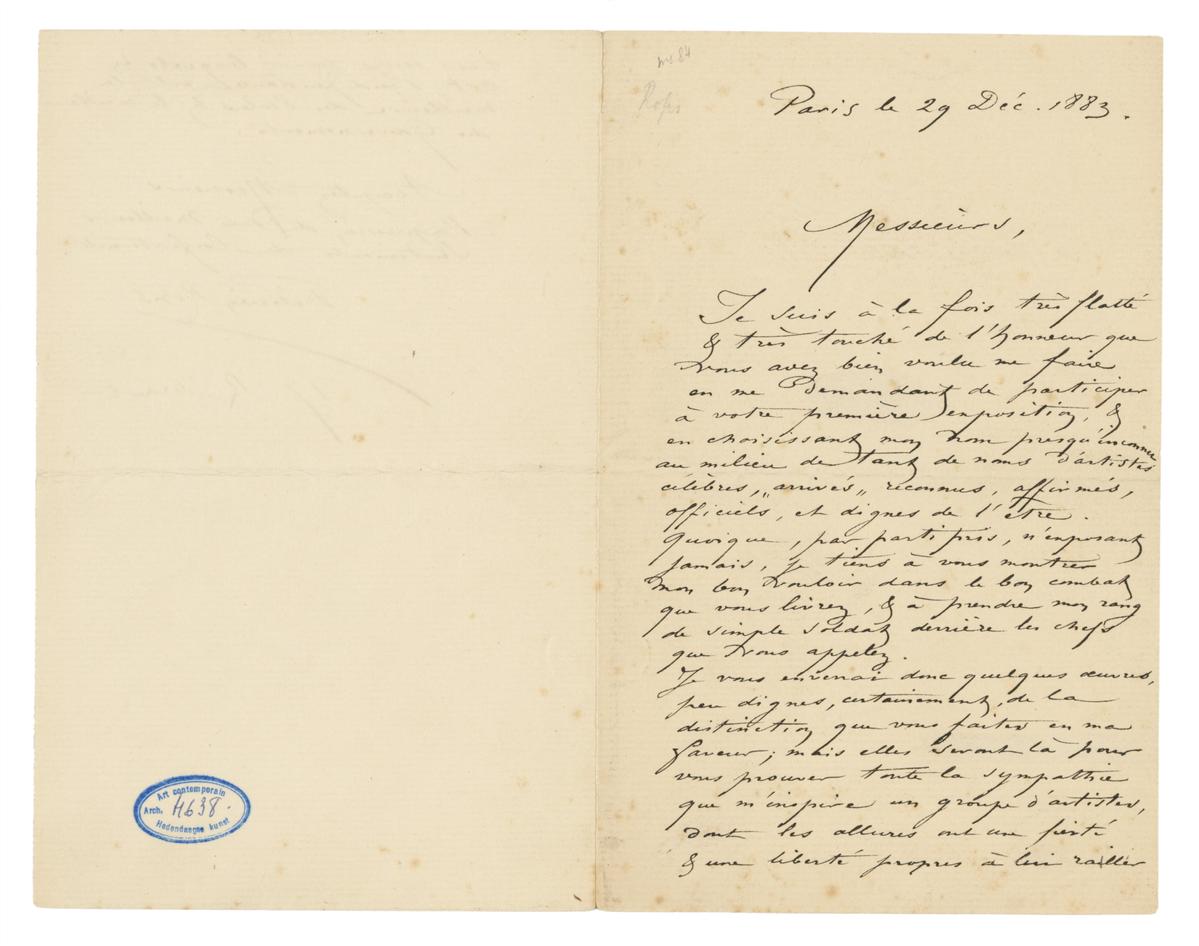 ms 84
Rops
Paris le 29 Déc. 1883.
Messieurs,
Je suis à la fois très flatté
& très touché de l'honneur que
vous avez bien voulu me faire
en me Demandant de participer
à votre première exposition, &
en choisissant mon nom presqu'inconnu
au milieu de tant de noms d'artistes
célèbres, „arrivés„ reconnus, affirmés,
officiels, et dignes de l'etre.
Quoique, par parti pris, n'exposant
jamais, je tiens à vous montrer
mon bon vouloir dans le bon combat
que vous livrez, & à prendre mon rang
de simple soldat derrière les chefs
que vous appelez.
Je vous enverrai donc quelques œuvres,
peu dignes, certainement, de la
distinction que vous faites en ma
faveur; mais elles seront là pour
vous prouver toute la sympathie
que m'inspire un groupe d'artistes,
dont les allures ont une fierté
& une liberté propres à lui rallier
Art contemporain
Arch. 4638.
Hedendaagse kunst